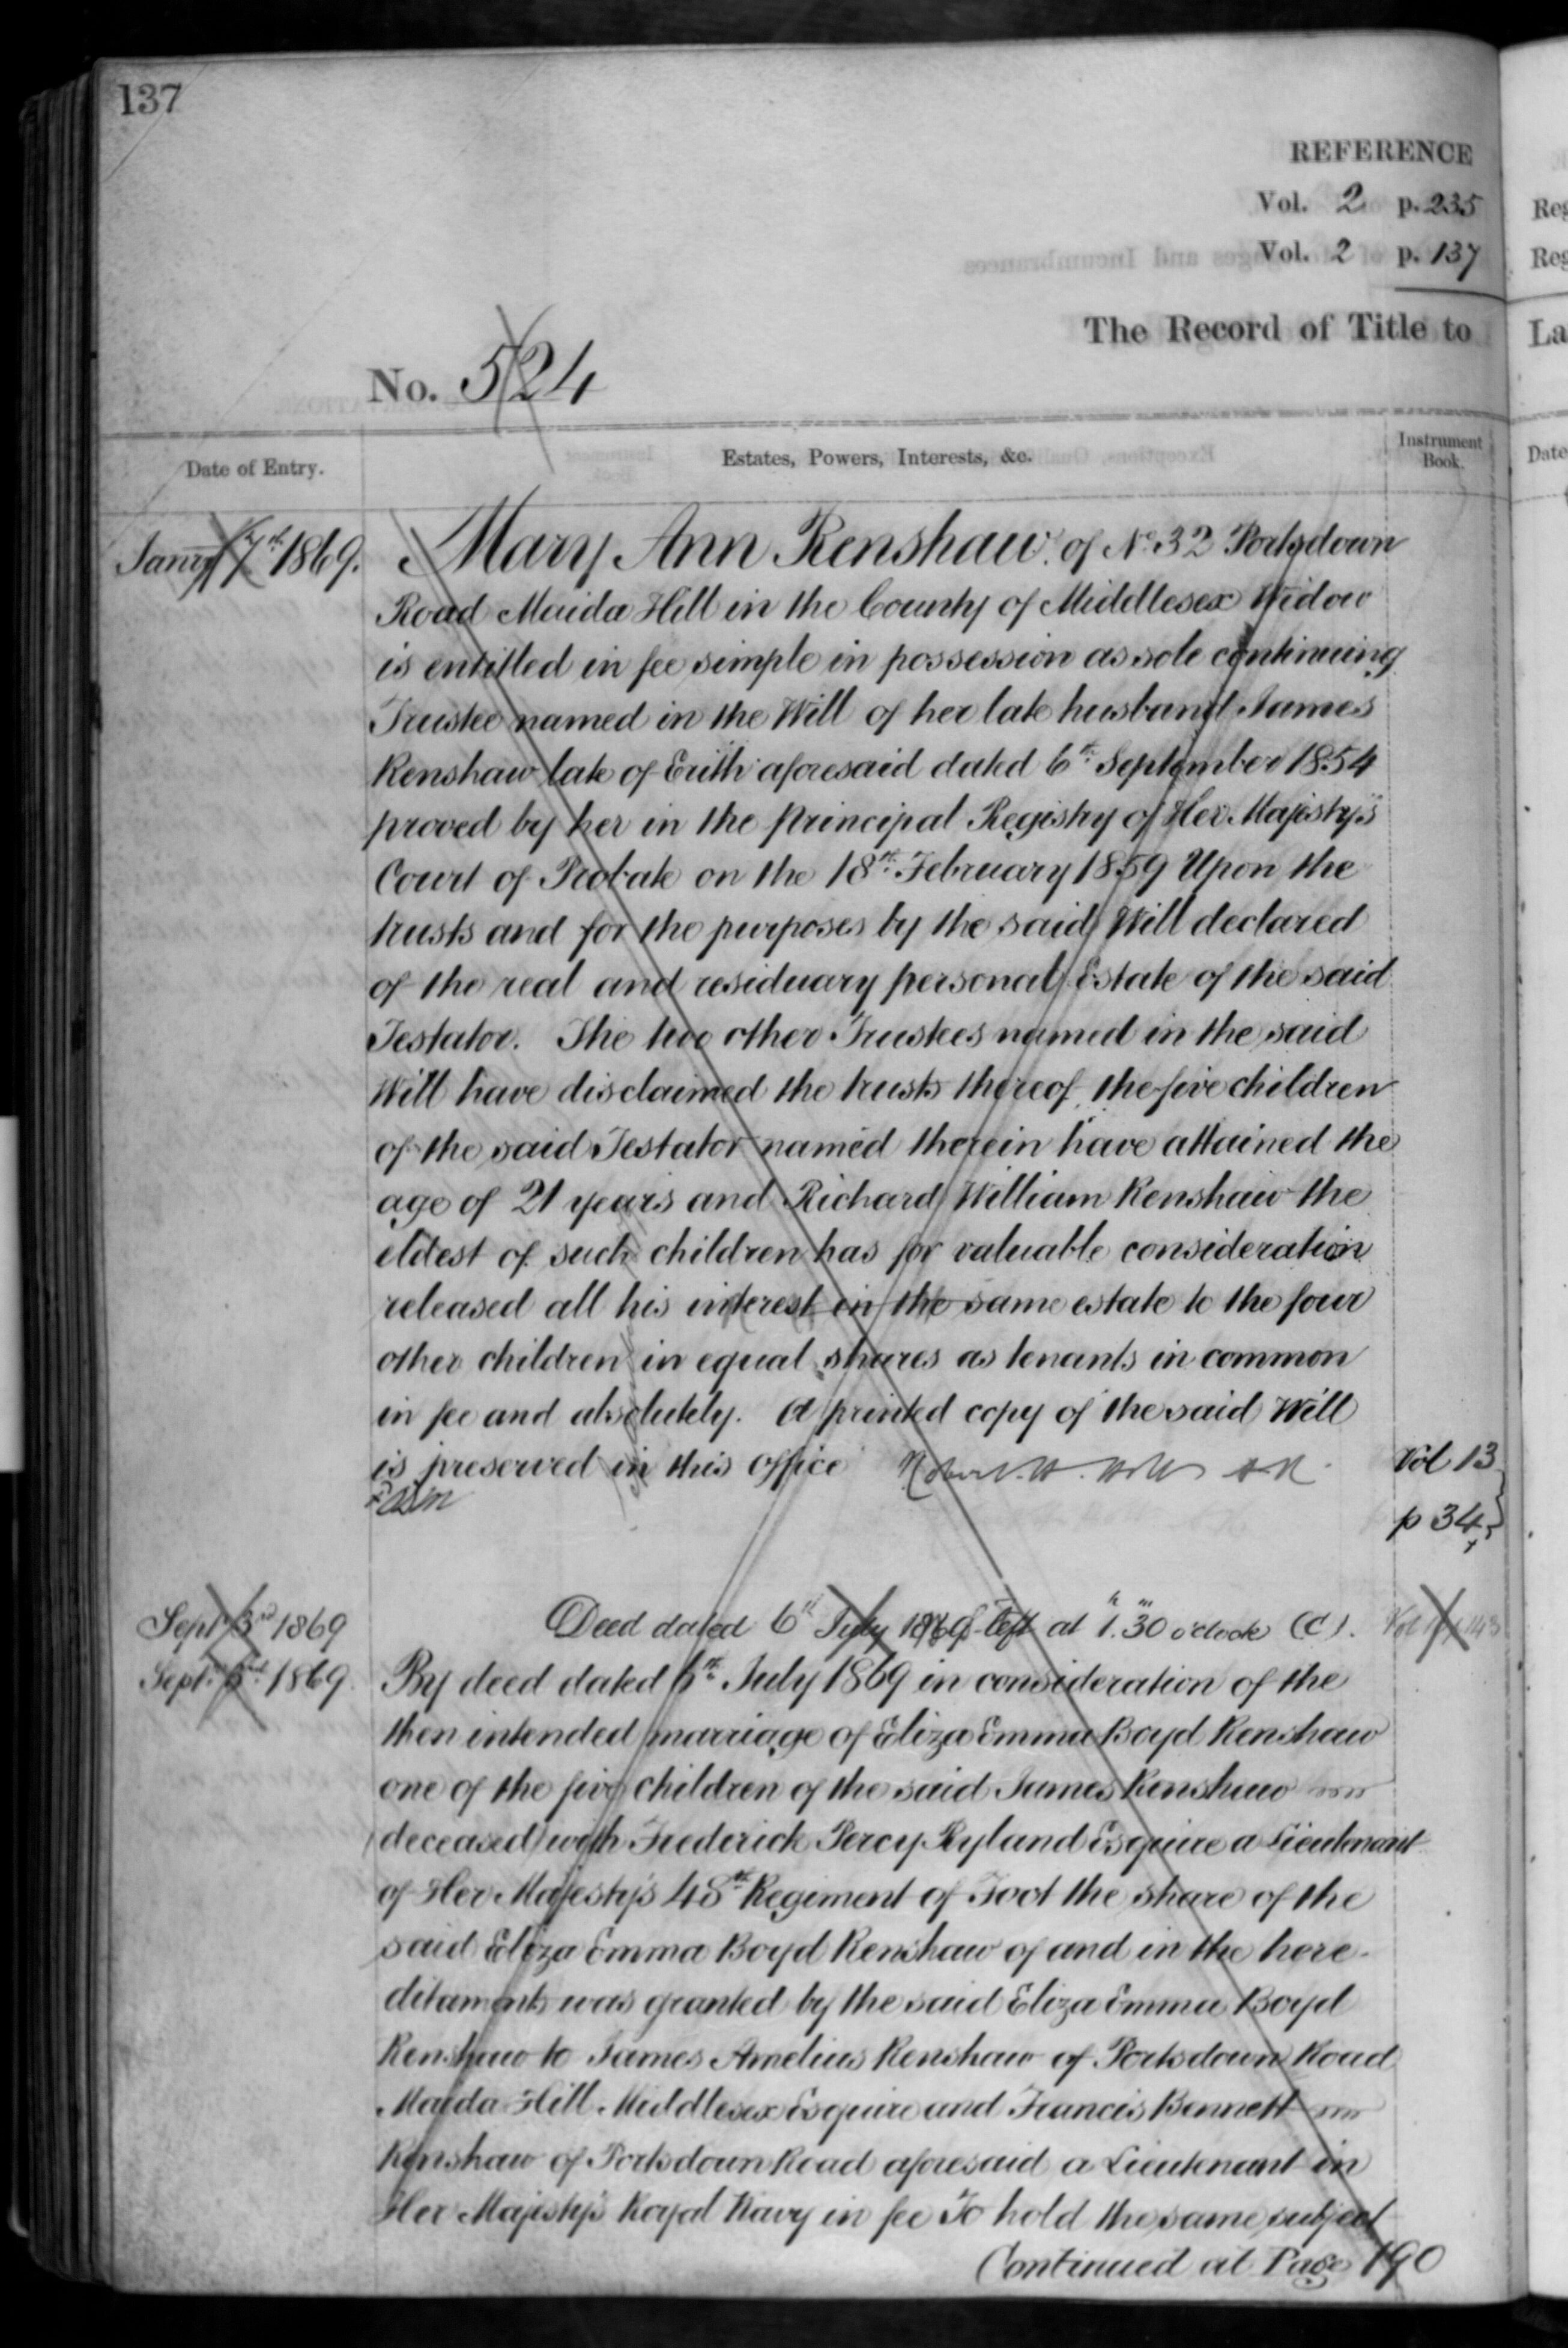 137
REFERENCE
Vol. 2 p. 235
Vol. 2 p. 137
The Record of Title to
No. 524
Date of Entry.
Estates, Powers, Interests, &c.
Instrument Book.
Jany 7th 1869.
Mary Ann Renshaw of No. 32 Portsdown
Road Maida Hill in the County of Middlesex Widow
is entitled in fee simple in possession as sole continuing
Trustee named in the Will of her late husband James
Renshaw late of Erith aforesaid dated 6th September 1854
proved by her in the principal Registry of Her Majesty's
Court of Probate on the 18th February 1859 Upon the
trusts and for the purposes by the said Will declared
of the real and residuary personal Estate of the said
Testator. The two other Trustees named in the said
Will have disclaimed the trusts thereof the five children
of the said Testator named therein have attained the
age of 21 years and Richard William Renshaw the
eldest of such children has for valuable consideration
released all his interest in the same estate to the four
other children in equal shares as tenants in common
in fee and absolutely. A printed copy of the said Will
is preserved in this office
Vol 13
p 34
Sept 3rd 1869
Deed dated 6th July 1869 left at 1h.30m o'clock (C).
Sept. 3rd 1869
By deed dated 6th July 1869 in consideration of the
then intended marriage of Eliza Emma Boyd Renshaw
one of the five children of the said James Renshaw
deceased with Frederick Percy Ryland Esquire a Lieutenant
of Her Majesty's 48th Regiment of Foot the share of the
said Eliza Emma Boyd Renshaw of and in the here-
ditaments was granted by the said Eliza Emma Boyd
Renshaw to James Amelius Renshaw of Portsdown Road
Maida Hill Middlesex Esquire and Francis Bennett
Renshaw of Portsdown Road aforesaid a Lieutenant in
Her Majesty's Royal Navy in fee To hold the same subject
Continued at Page 190
La
Date